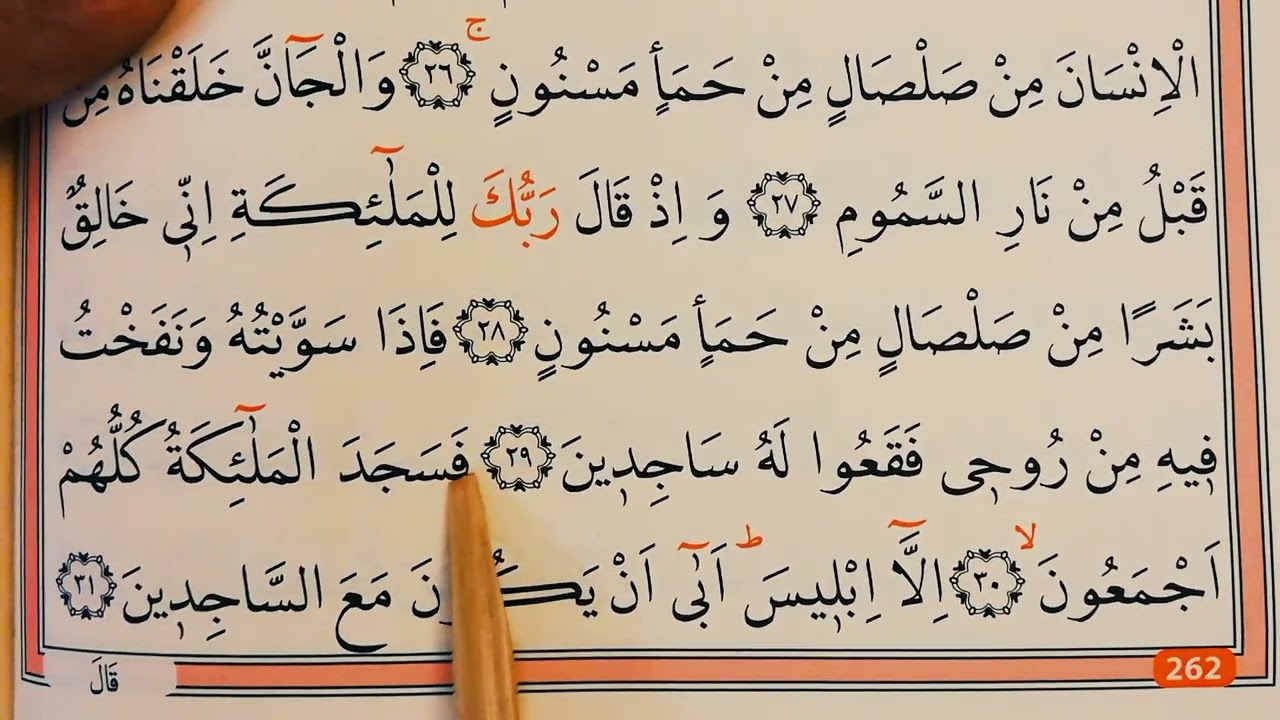 الْاِنْسَانَ مِنْ صَلْصَالٍ مِنْ حَمَأٍ مَسْنُونٍۚ ﴿٢٦﴾ وَالْجَٓانَّ خَلَقْنَاهُ مِنْ
قَبْلُ مِنْ نَارِ السَّمُومِ ﴿٢٧﴾ وَاِذْ قَالَ رَبُّكَ لِلْمَلٰٓئِكَةِ اِنّ۪ي خَالِقٌ
بَشَرًا مِنْ صَلْصَالٍ مِنْ حَمَأٍ مَسْنُونٍ ﴿٢٨﴾ فَاِذَا سَوَّيْتُهُ وَنَفَخْتُ
ف۪يهِ مِنْ رُوح۪ي فَقَعُوا لَهُ سَاجِد۪ينَ ﴿٢٩﴾ فَسَجَدَ الْمَلٰٓئِكَةُ كُلُّهُمْ
اَجْمَعُونَۙ ﴿٣٠﴾ اِلَّٓا اِبْل۪يسَۜ اَبٰٓى اَنْ يَكُونَ مَعَ السَّاجِد۪ينَ ﴿٣١﴾
قَالَ
262